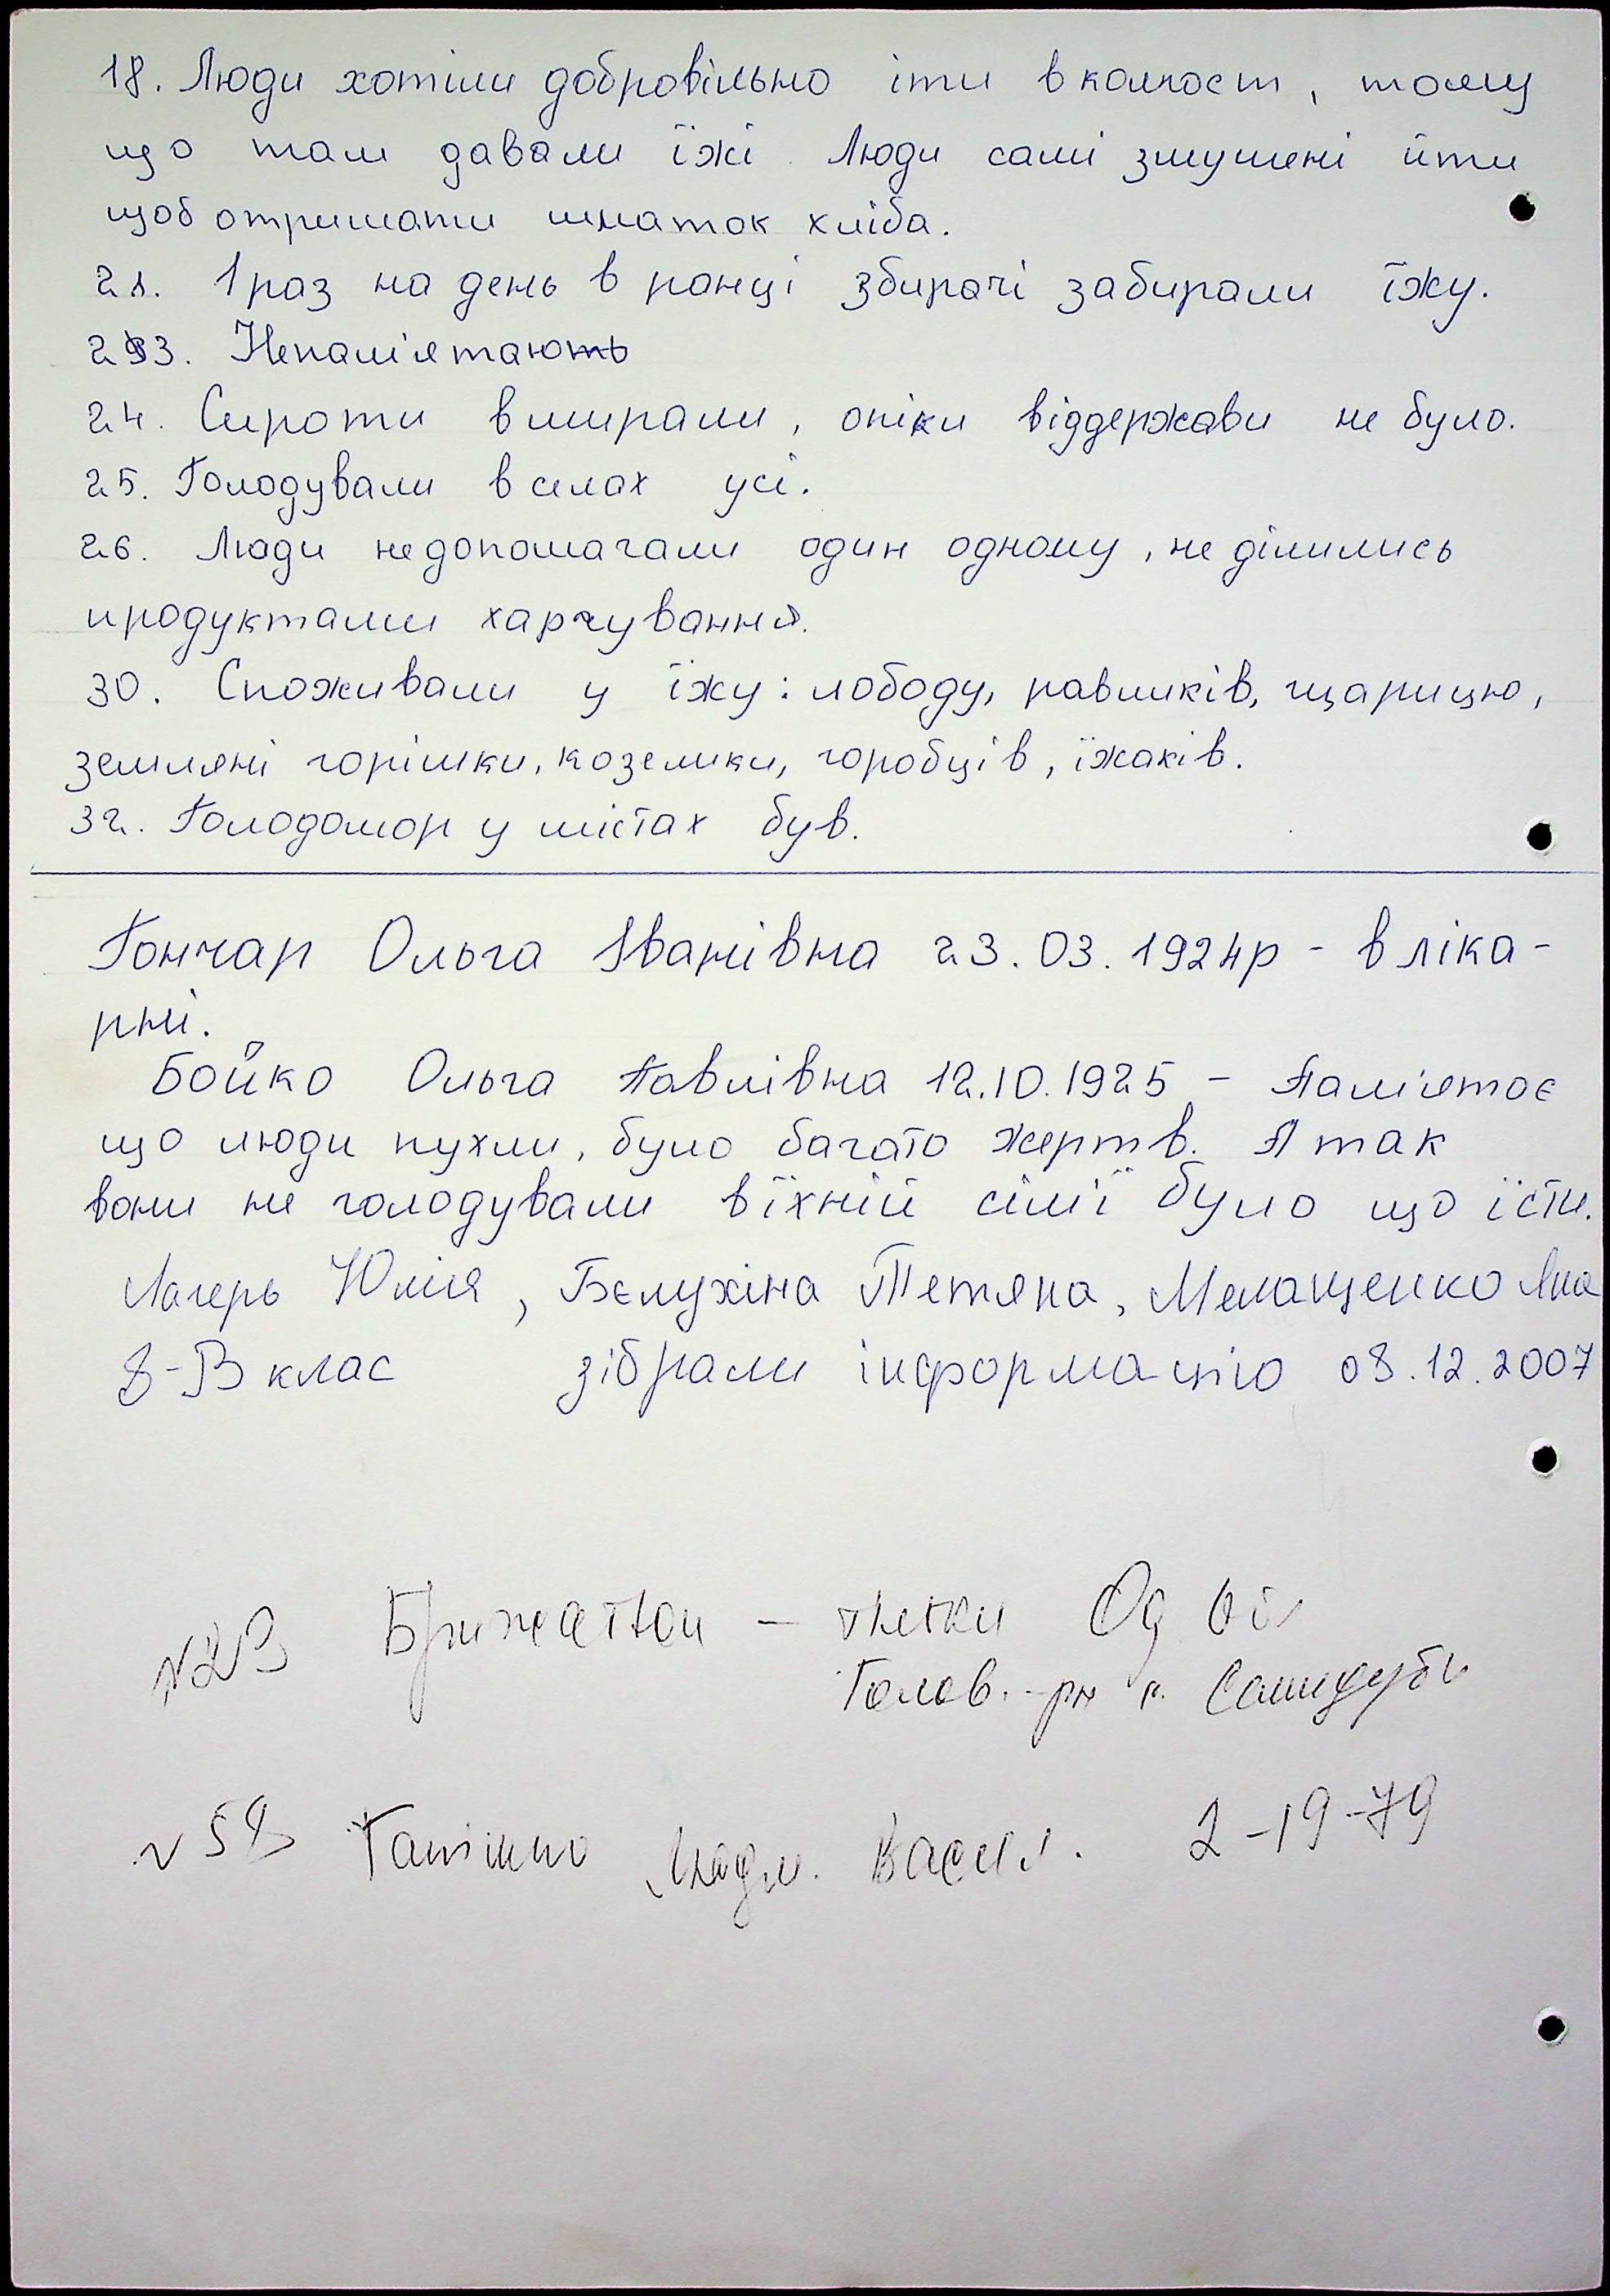 18. Люди хотіли добровільно іти в колгосп, тому
що там давали їжі. Люди самі змушені йти
щоб отримати шматок хліба.
21. 1 раз на день в ранці збирачі забирали їжу.
23. Непам'ятають
24. Сироти вмирали, опіки віддержави не було.
25. Голодували в селах усі.
26. Люди недопомагали один одному, не ділились
продуктами харчування.
30. Споживали у їжу: лободу, равликів, щарицю,
земляні горішки, козелики, горобців, їжаків.
32. Голодомор у містах був.
Гончар Ольга Іванівна 23.03.1924р - в ліка-
рні.
Бойко Ольга Павлівна 12.10.1925 - Пам'ятає
що люди пухли, було багато жертв. А так
вони не голодували в їхній сім'ї було що їсти.
Лагерь Юлія, Бєлухіна Тетяна, Мелащенко Яна
8-В клас зібрали інформацію 08.12.2007
N23 - Од
Голов. р-н
N 58 Васил. 2-19-79